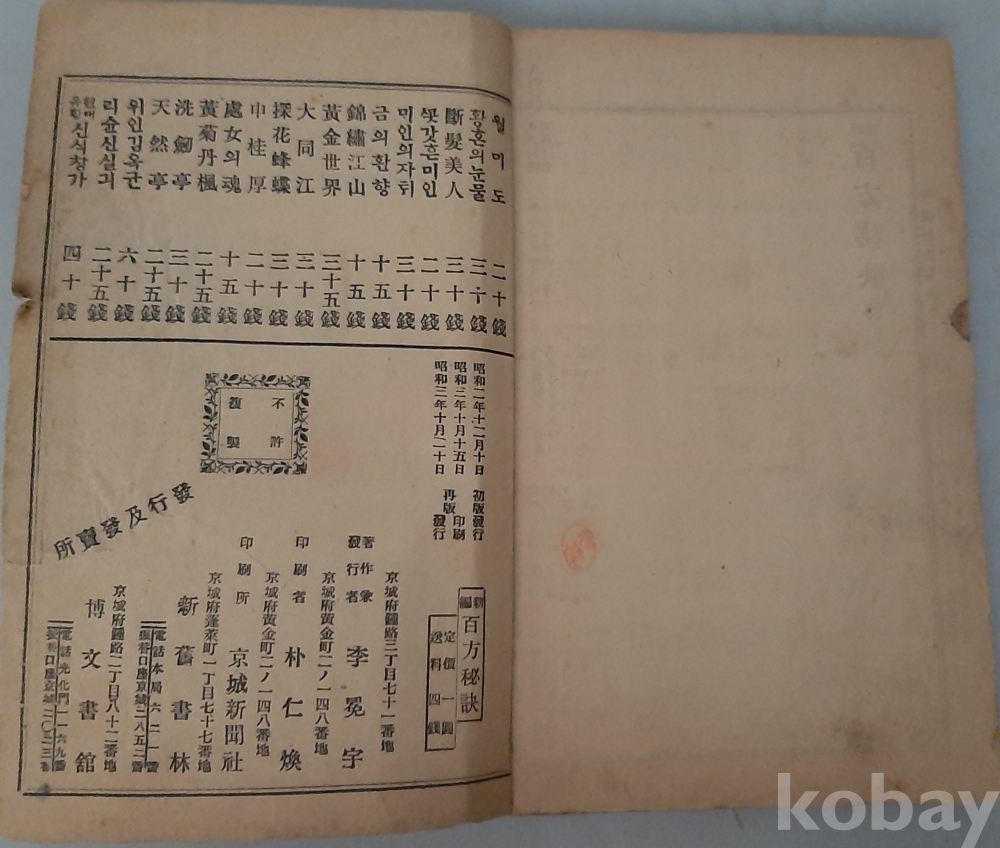 월미도 二十錢
황혼의눈물 三十錢
斷髮美人 三十錢
쏫갓흔미인 二十錢
미인의자취 三十錢
금의환향 十五錢
錦繡江山 十五錢
黃金世界 三十五錢
大同江 三十錢
探花蜂蝶 三十錢
巾桂厚 二十錢
處女의魂 十五錢
黃菊丹楓 二十五錢
洗劒亭 三十錢
天然亭 二十五錢
위인김옥균 六十錢
리슌신실긔 二十五錢
신식창가 四十錢
昭和二年十二月十日 初版發行
昭和三年十月十五日 再版印刷
昭和三年十月二十日 再版發行
不許
複製
新編 百方秘訣
定價一圓
送料四錢
京城府鍾路三丁目七十一番地
著作兼
發行者 李冕宇
京城府黃金町二ノ一四八番地
印刷者 朴仁煥
京城府黃金町二ノ一四八番地
印刷所 京城新聞社
發行及發賣所
京城府蓬萊町一丁目七十七番地
新舊書林
電話本局六二一番
振替口座京城二八五二番
京城府鍾路二丁目八十二番地
博文書館
電話光化門一一六九番
振替口座京城二〇二三番
kobay